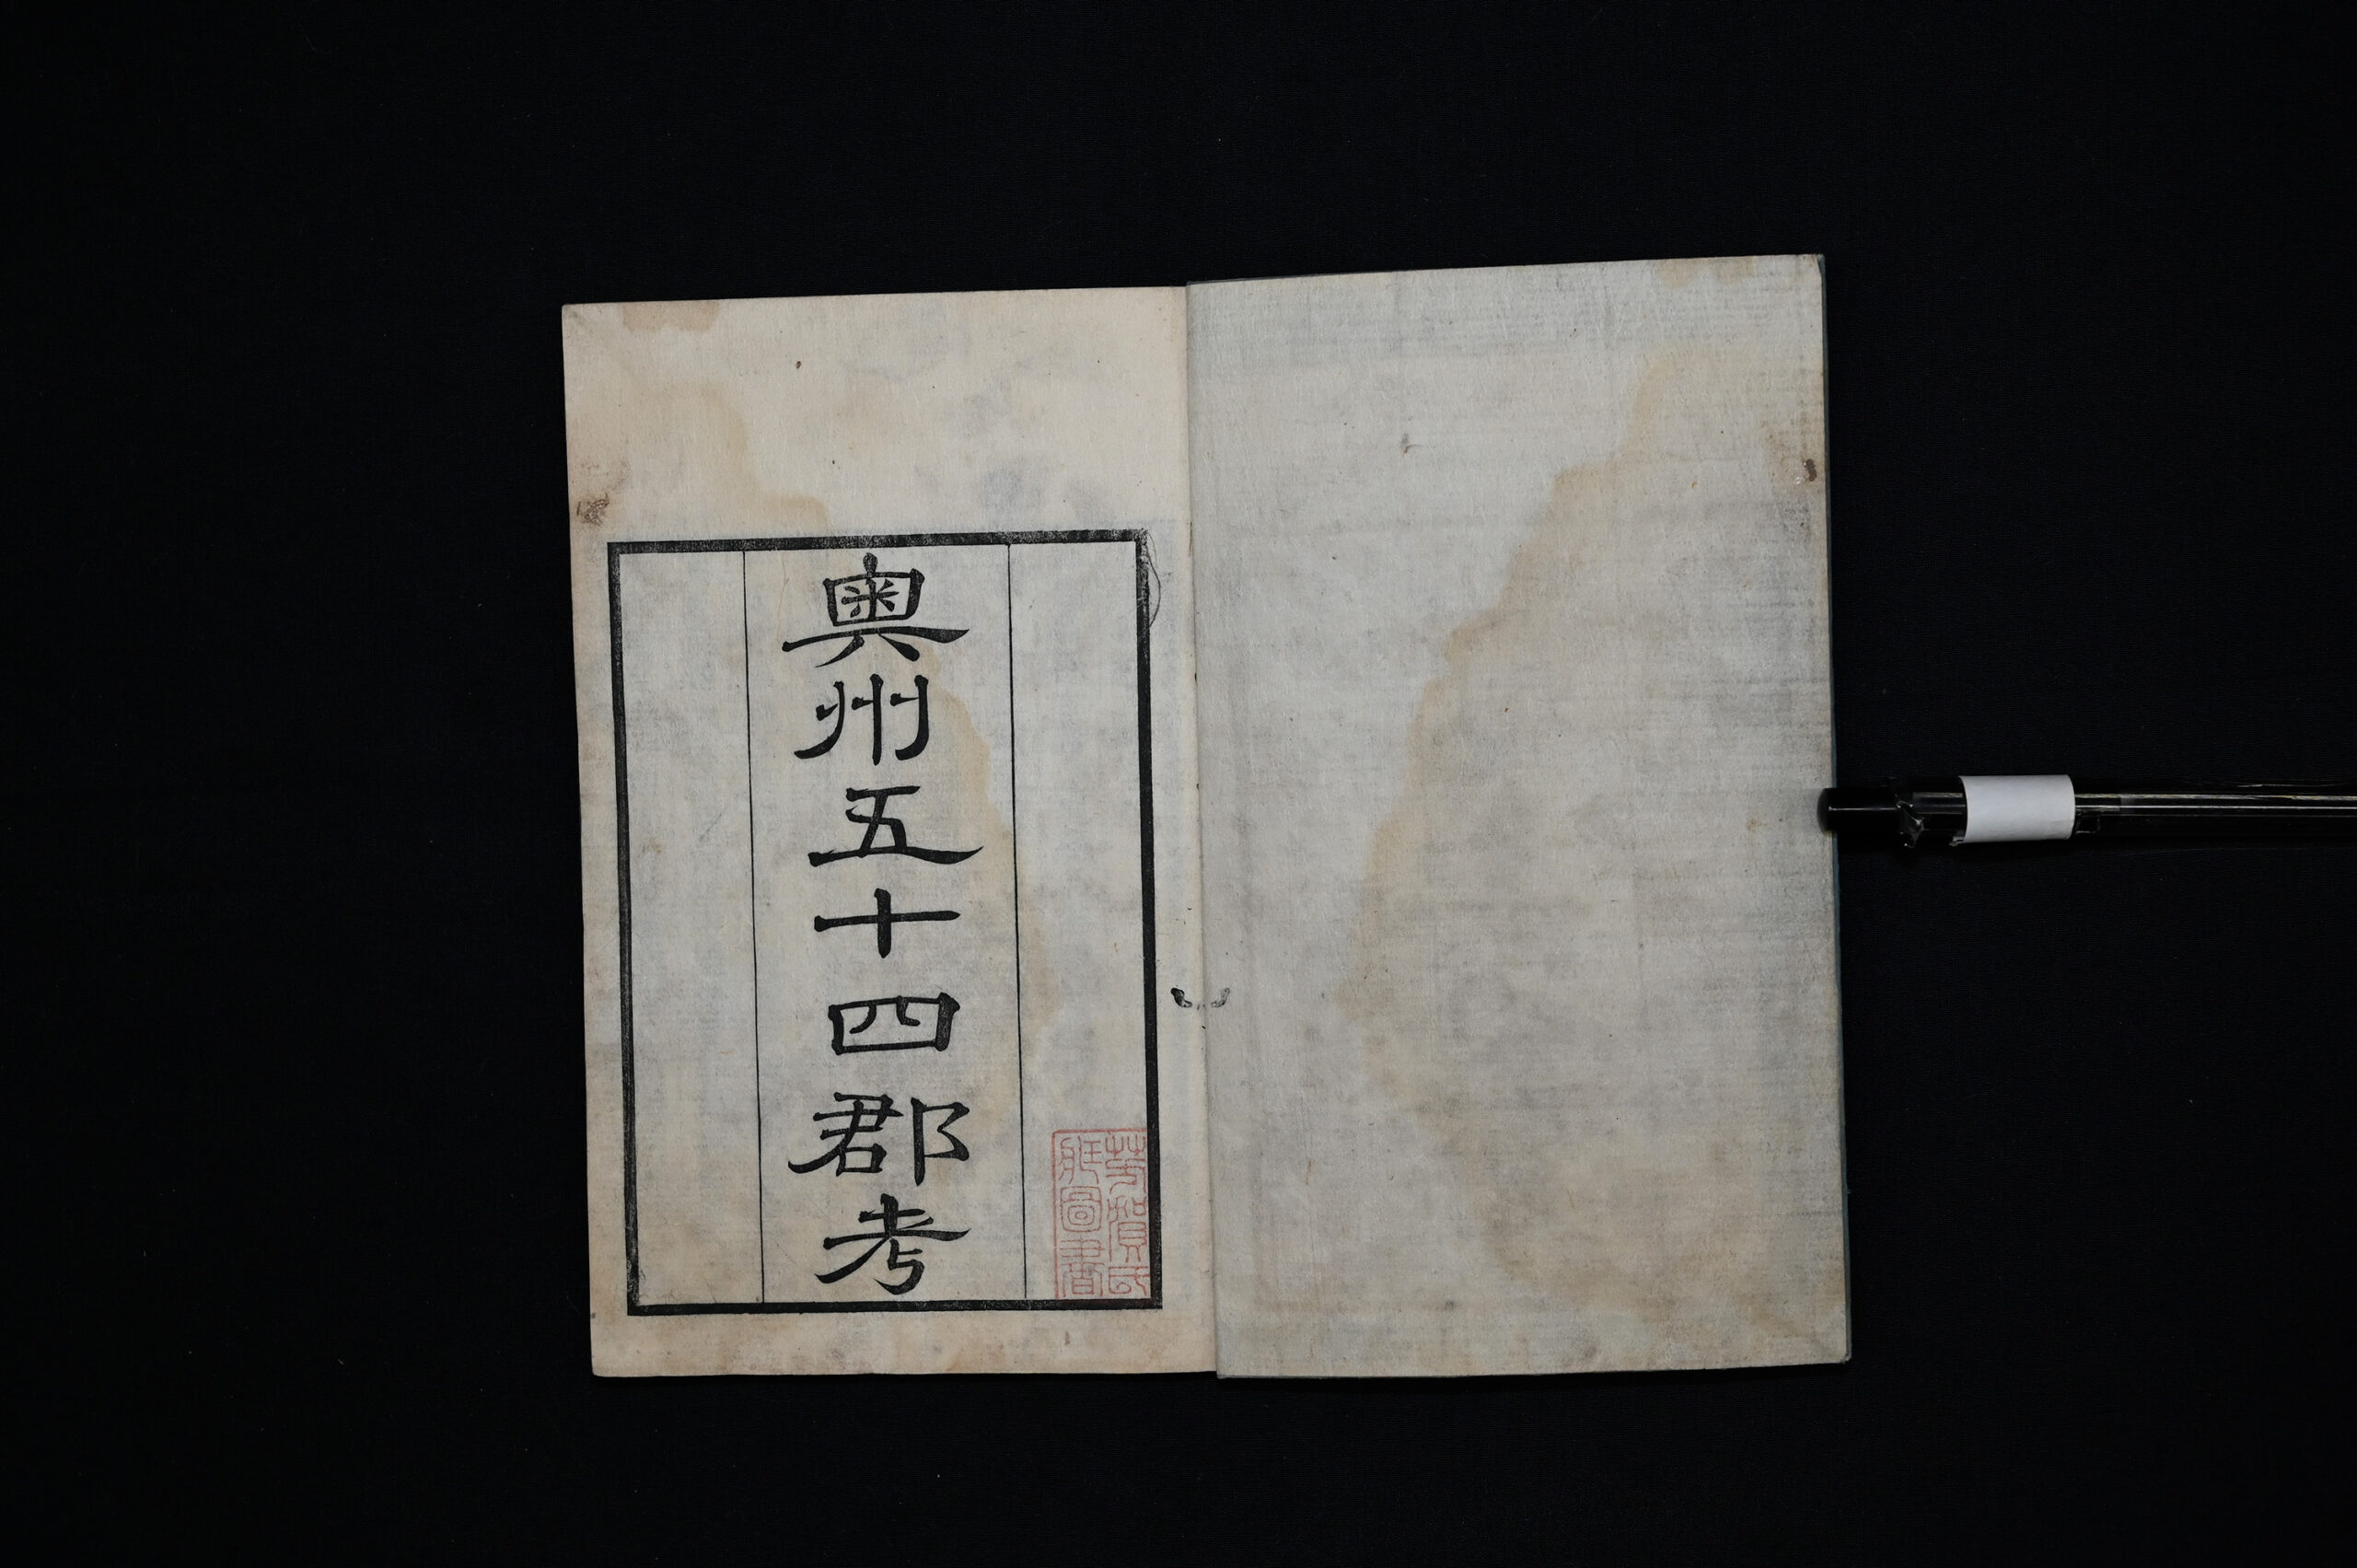 奧州五十四郡考
芳賀氏
圖書